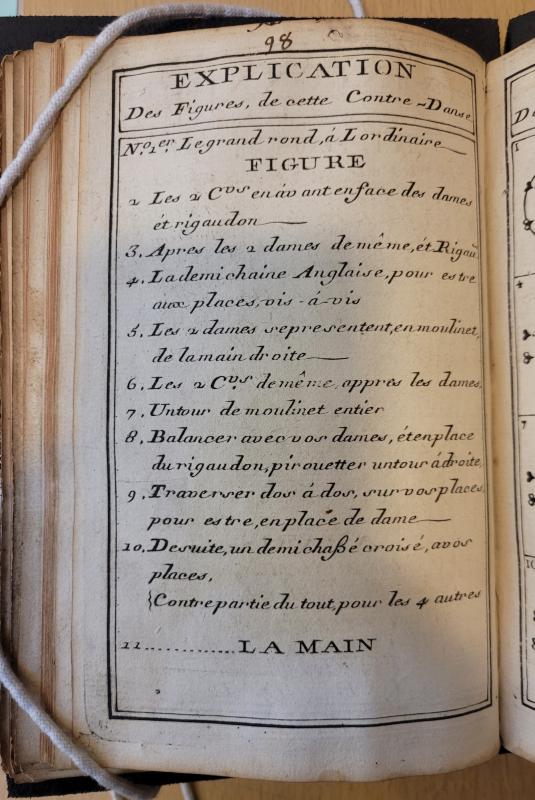 98
EXPLICATION
Des Figures, de cette Contre-Danse
No. 1er. Le grand rond, á Lordinaire
FIGURE
2 Les 2 Cvrs en áv ant en face des dames
ét rigaudon
3. Apres les 2 dames de même, ét Rigau
4. La demi chaine Anglaise, pour estre
aux places, vis-á-vis
5. Les 2 dames se presentent, en moulinet,
de la main droite
6. Les 2 Cvrs. de même, appres les dames,
7. Un tour de moulinet entier
8. Balancer avec vos dames, ét en place
du rigaudon, pirouetter un tour á droite,
9. Traverser dos á dos, sur vos places,
pour estre, en place de dame
10. De suite, un demi chaßé croisé, a vos
places,
{Contre partie du tout, pour les 4 autres
11............LA MAIN
D
1
4
7
10